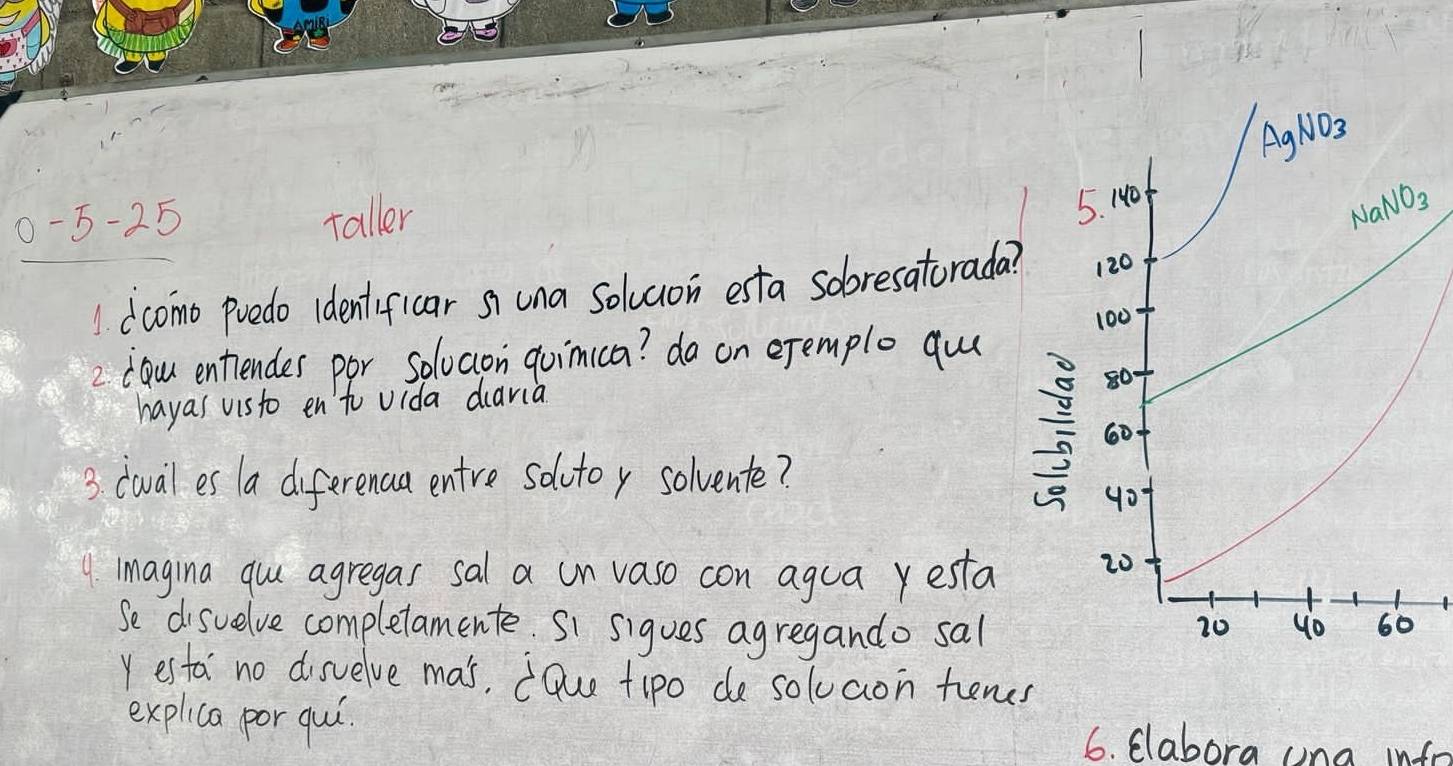 AMIRI
0-5-25 Taller
1. ¿cómo puedo identificar si una solución esta sobresaturada?
2. ¿Que entiendes por solución química? da un ejemplo que
hayas visto en tu vida diaria
3. ¿cuál es la diferencia entre soluto y solvente?
4. imagina que agregas sal a un vaso con agua y esta
Se disuelve completamente. Si sigues agregando sal
y está no disuelve más. ¿Que tipo de solución tienes
explica por qué.
5.
AgNO3
NaNO3
Solubilidad
140
120
100
80
60
40
20
20 40 60
6. Elabora una